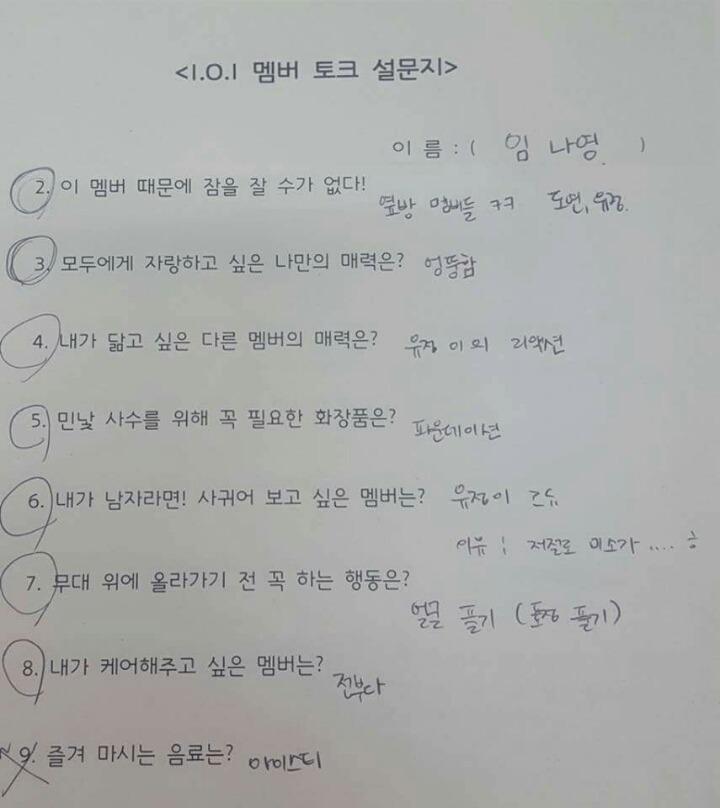 <I.O.I 멤버 토크 설문지>
이 름 : ( 임 나영. )
2. 이 멤버 때문에 잠을 잘 수가 없다!
옆방 멤버들 ㅋㅋ 도연, 유정.
3. 모두에게 자랑하고 싶은 나만의 매력은? 엉뚱함
4. 내가 닮고 싶은 다른 멤버의 매력은? 유정이의 리액션
5. 민낯 사수를 위해 꼭 필요한 화장품은? 파운데이션
6. 내가 남자라면! 사귀어 보고 싶은 멤버는? 유정이
이유 : 저절로 미소가 ....
7. 무대 위에 올라가기 전 꼭 하는 행동은?
얼굴 풀기 (표정 풀기)
8. 내가 케어해주고 싶은 멤버는? 전부다
9. 즐겨 마시는 음료는? 아이스티